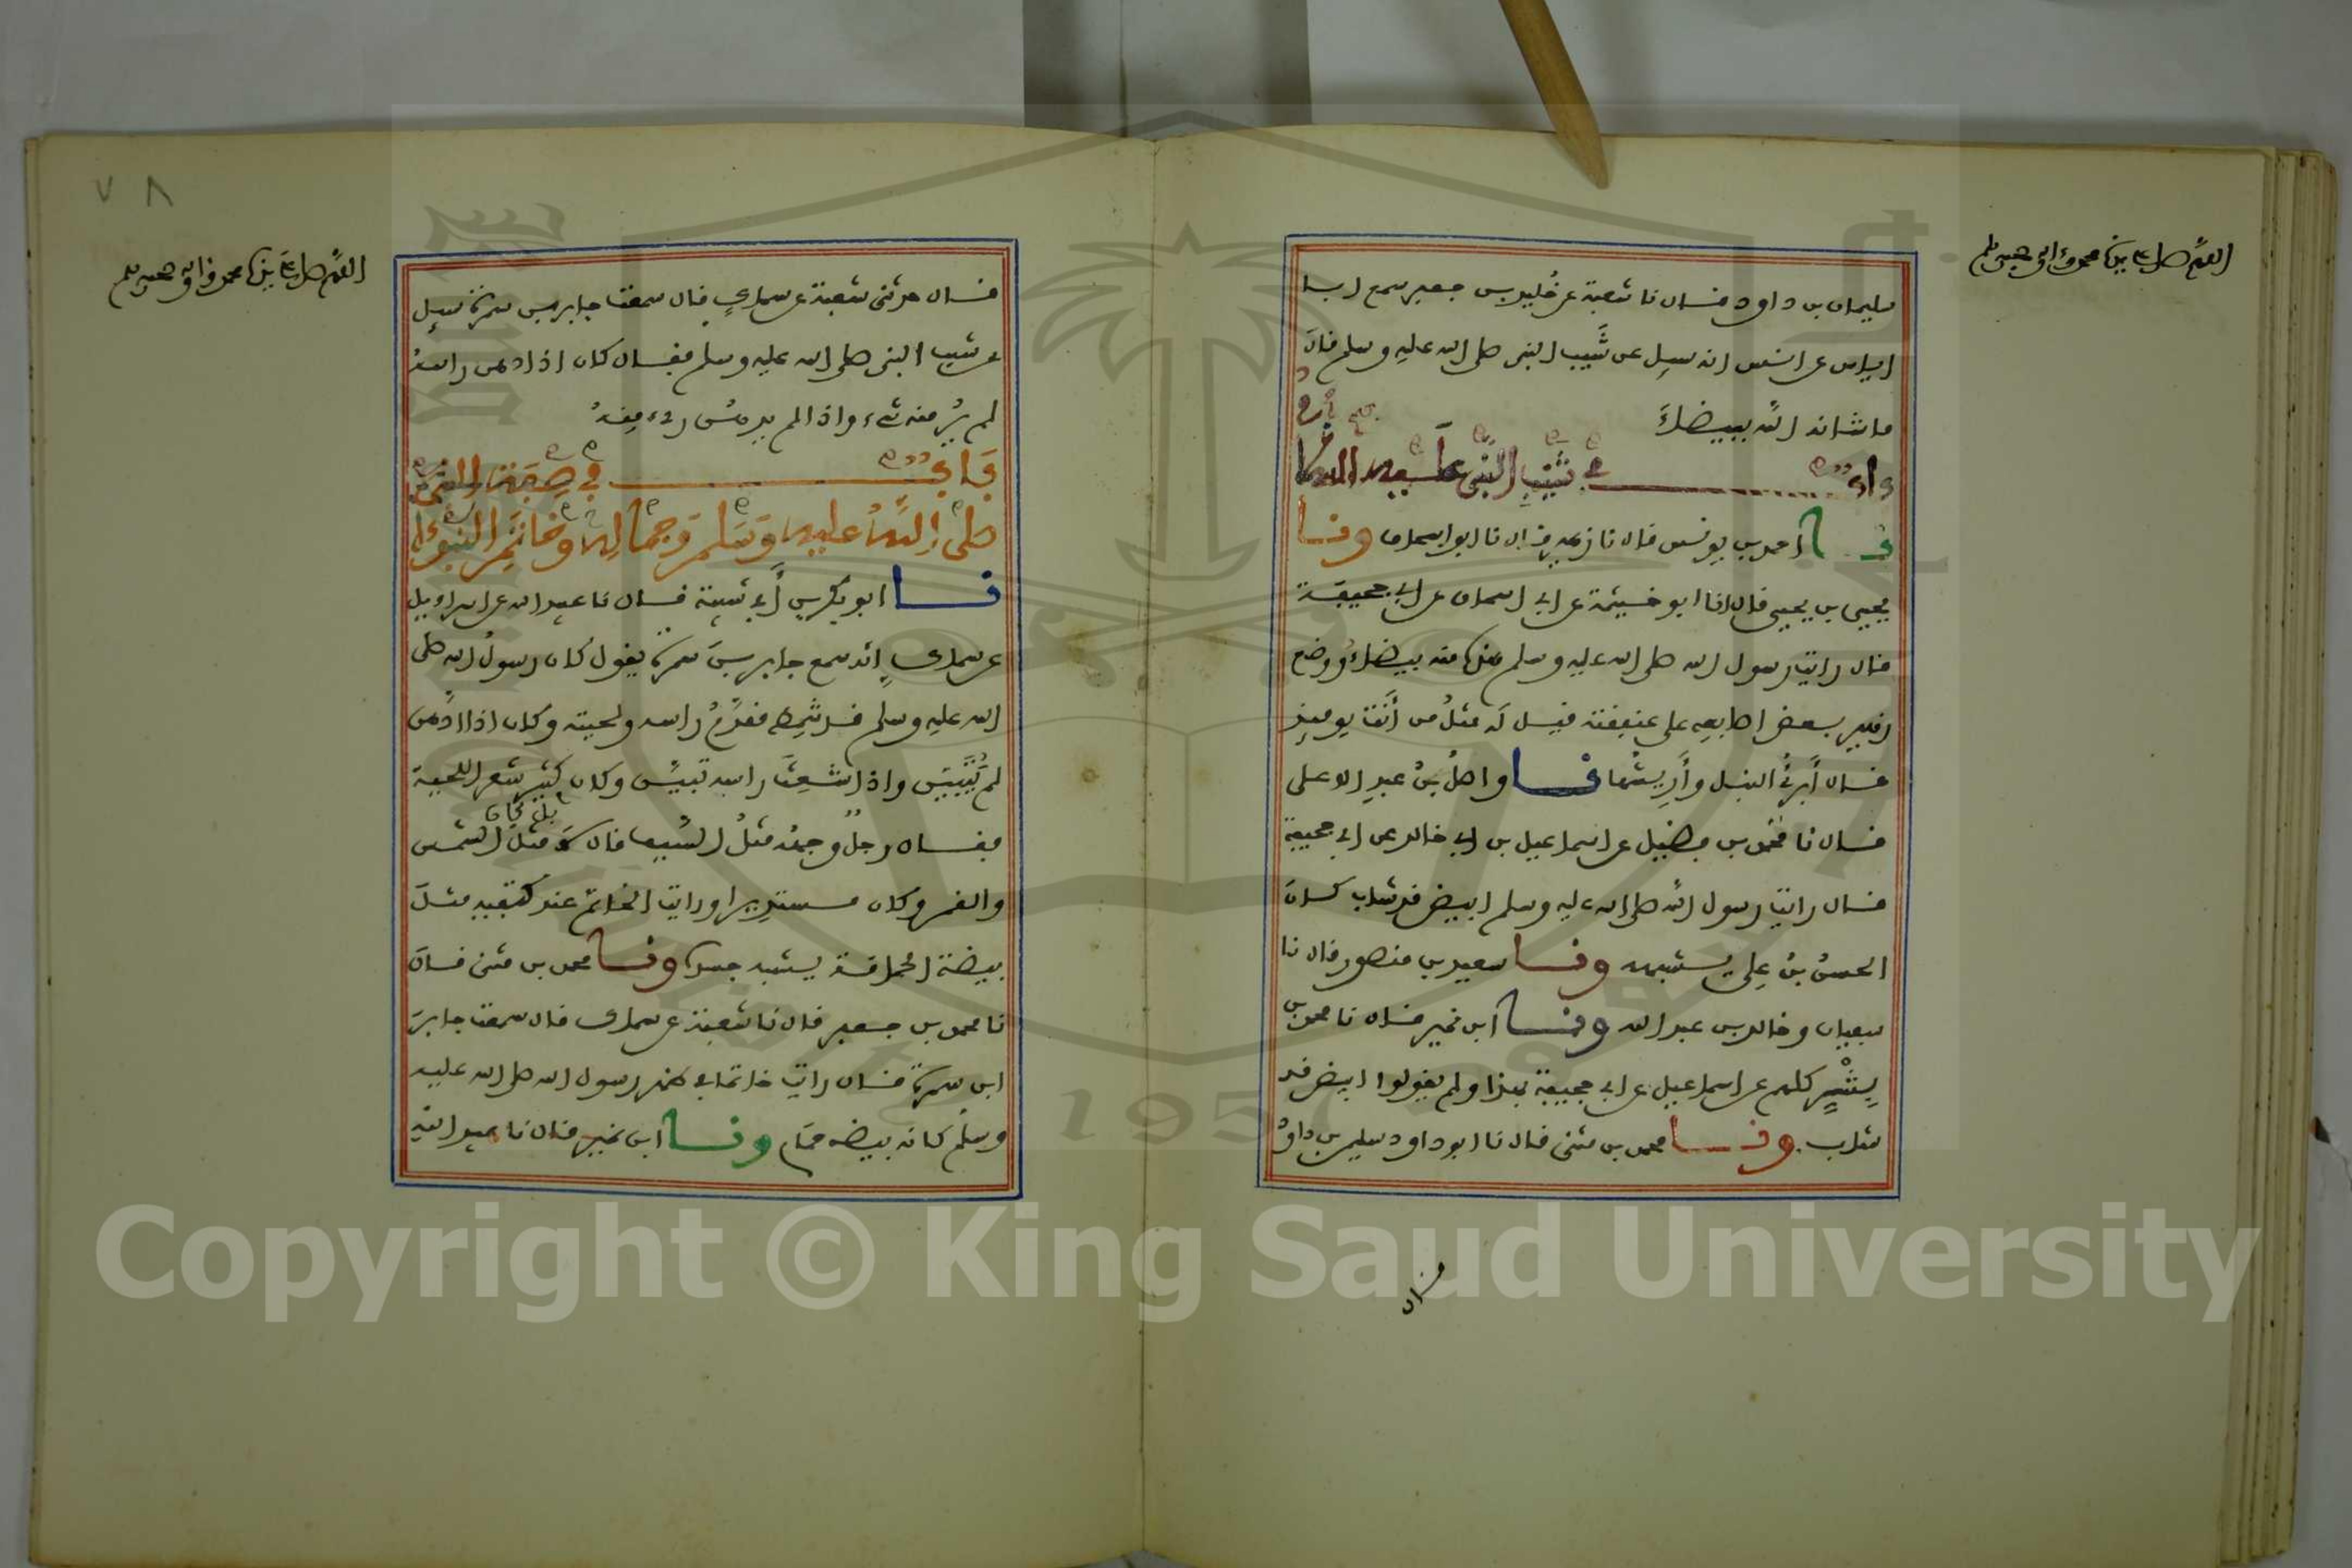 اللهم صل على سيدنا محمد وعلى اله وصحبه وسلم
سليمان بن داود قال نا شعبة عن خُليد بن جعفر سمع ابا
اياس عن انس انه سيل عن شَيب النبي صلى الله عليه وسلم قال
ما شانه اللّه ببيضاءَ
باب في شيب النبي عليه السلام
نا احمد بن يونس قال نا زهير قال نا ابو اسحاق ونا
يحيى بن يحيى قال انا ابو خيثمة عن ابي اسحاق عن ابي جحيفة
قال رايت رسول الله صلى الله عليه وسلم هذه منه بيضاءُ ووضع
زهير بعض اصابعه على عنفقته قيل له مثلُ من أنت يوميذ
قال أبرِي النبل وأَرِيشُها نا واصلُ بنُ عبدِ الاعلى
قال نا محمد بن فضيل عن اسماعيل بن ابي خالد عن ابي جحيفة
قال رايت رسول اللّه صلى الله عليه وسلم ابيض قد شاب كان
الحسنُ بنُ عَلِي يشبهه ونا سعيد بن منصور قال نا
سفيان وخالد بن عبد الله ونا ابن نمير قال نا محمد بن
بِشْرٍ كلهم عن اسماعيل عن ابي جحيفة بهذا ولم يقولوا ابيض قد
شاب ونا محمد بن مثنى قال نا ابو داود سليمن بن داود
قال
٧٨
اللهم صل على سيدنا محمد وعلى اله وصحبه وسلم
قال حدثنى شعبة عن سماكٍ قال سمعت جابر بن سمرة سيل
عن شيب النبي صلى الله عليه وسلم فقال كان اذا دهن راسهُ
لم يُر منه شيء واذا لم يدهنُ رءي منهُ
باب في صفة النبي
صلى اللّهُ عليه وَسَلم وَجماله وخاتَمِ النبوءة
نا ابو بكر بن أبي شيبة قال نا عبيد الله عن اسراءيل
عن سماكٍ انه سمع جابر بنَ سمرة يقول كان رسولُ الله صلى
الله عليه وسلم قد شَمِط مقدَّمُ راسه ولحيته وكان اذا ادَّهن
لم يَتَبَيَّن واذا شعِثَ راسه تبيَّن وكان كثير شعر اللحية
فقال رجلٌ وجهُه مثلُ السَّيف قال لا بل كان مثلَ الشمس
والقمر وكان مستديرا ورايت الخاتم عند كتفيه مثلَ
بيضة الحمامة يشبه جسده ونا محمد بن مثنى قال
نا محمد بن جعفر قال نا شعبة عن سماك قال سمعت جابرَ
ابن سمرة قال رايت خاتما في ظهر رسول الله صلى الله عليه
وسلم كانه بيضه حمَام ونا ابن نمير قال نا عبيد الله
Copyright © King Saud University
1957